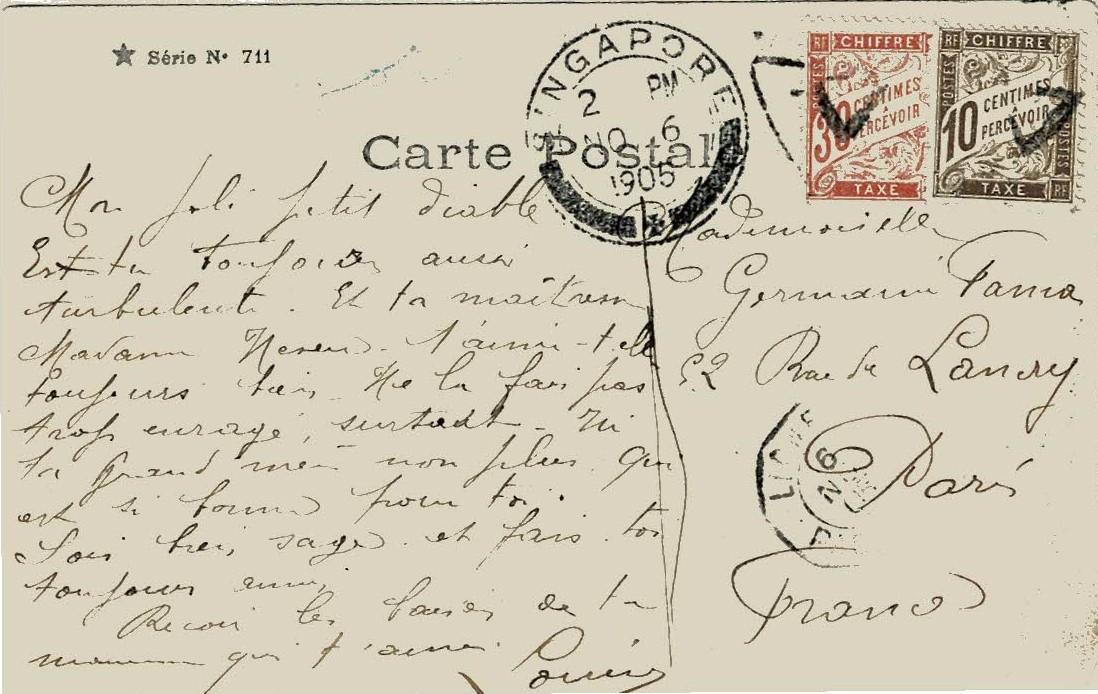 ★ Série Nº 711
Carte Postale
SINGAPORE
2 PM
NO 6
1905
RF CHIFFRE
POSTES
30 CENTIMES
À PERCEVOIR
TAXE
RF CHIFFRE
POSTES
10 CENTIMES
À PERCEVOIR
TAXE RF
Mon joli petit diable
Est tu toujours aussi
turbulente. Et ta maîtresse
Madame t'aime-t-elle
toujours bien. Ne la fais pas
trop enragé, surtout. Ni
ta grand mère non plus. Qui
est si bonne pour toi.
Sois bien sage et fais toi
toujours aimer.
Reçois les baisers de ta
maman qui t'aime
Mademoiselle
Germaine
52 Rue de Lancry
Paris
France
LIGNE